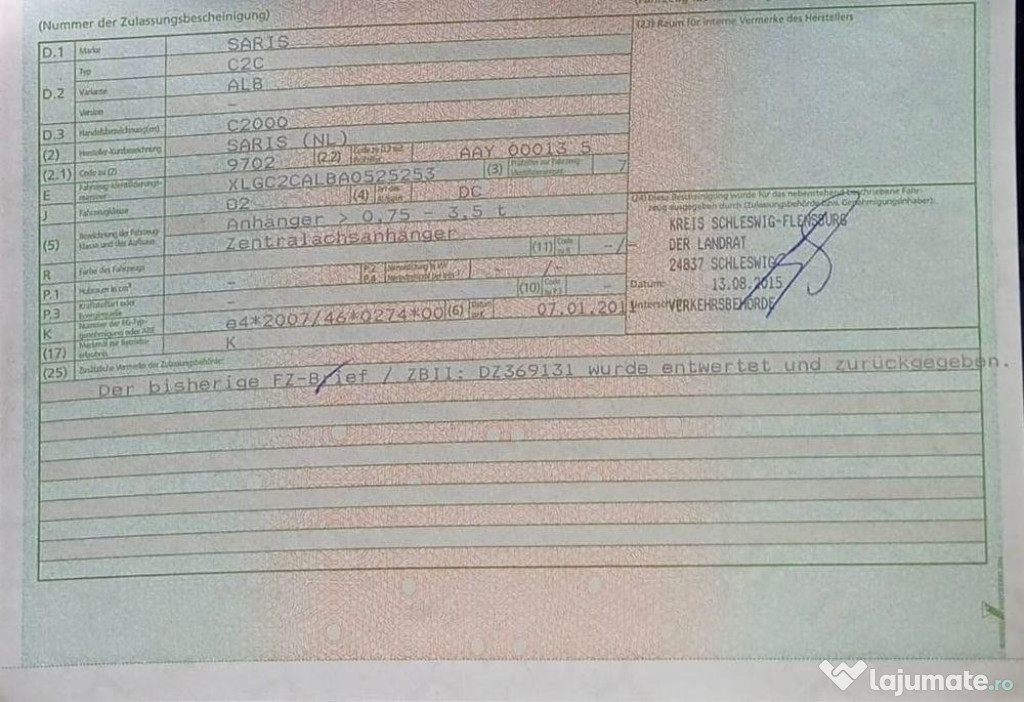 (Nummer der Zulassungsbescheinigung)
(23) Raum für interne Vermerke des Herstellers
D.1 Marke SARIS
Typ C2C
D.2 Variante ALB
Version -
D.3 Handelsbezeichnung(en) C2000
(2) Hersteller-Kurzbezeichnung SARIS (NL)
(2.1) Code zu (2) 9702 (2.2) Code zu D.2 mit AAY 00013 5
E Fahrzeug-Identifizierungs-nummer XLGC2CALBA0525253 (3) 7
J Fahrzeugklasse 02 (4) Art des DC
Anhänger > 0,75 - 3,5 t
(5) Bezeichnung der Fahrzeug-klasse und des Aufbaus Zentralachsanhänger
R Farbe des Fahrzeugs - (11) Code zu R -/-
P.1 Hubraum in cm³ - P.2 P.4 -/-
P.3 Kraftstoffart oder Energiequelle - (10) Code zu P.3 -
K Nummer der EG-Typ-genehmigung oder ABE e4*2007/46*0274*00 (6) Datum zu K 07.01.2011
(17) Merkmal zur Betriebs-erlaubnis K
(24) Diese Bescheinigung wurde für das nebenstehend beschriebene Fahr-
zeug ausgegeben durch (Zulassungsbehörde bzw. Genehmigungsinhaber):
KREIS SCHLESWIG-FLENSBURG
DER LANDRAT
24837 SCHLESWIG
Datum: 13.08.2015
Unterschr VERKEHRSBEHÖRDE
(25) Zusätzliche Vermerke der Zulassungsbehörde:
Der bisherige FZ-Brief / ZBII: DZ369131 wurde entwertet und zurückgegeben.
lajumate.ro